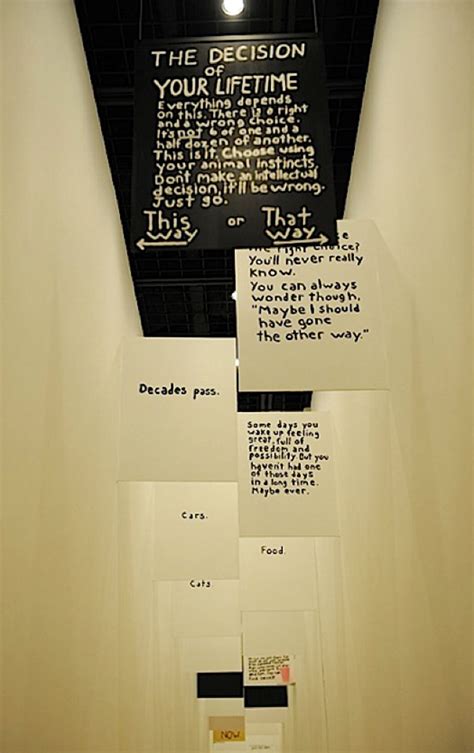 THE DECISION
of
YOUR LIFETIME
Everything depends
on this. There is a right
and a wrong choice.
It's not 6 of one and a
half dozen of another.
This is it. Choose using
your animal instincts.
Dont make an intellectual
decision, it'll be wrong.
Just go.
This or That
Way Way
the right choice?
You'll never really
know.
You can always
wonder though,
"Maybe I should
have gone
the other way."
Decades pass.
Some days you
wake up feeling
great, full of
freedom and
possibility. But you
haven't had one
of those days
in a long time.
Maybe ever.
Cars.
Food.
Cats
NOW